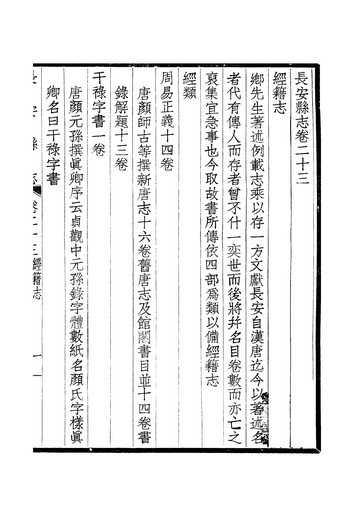 長安縣志卷二十三
經籍志
鄉先生著述例載志乘以存一方文獻長安自漢唐迄今以著述名
者代有傳人而存者曾不什一奕世而後將幷名目卷數而亦亡之
裒集宜急事也今取故書所傳依四部爲類以備經籍志
經類
周易正義十四卷
唐顏師古等撰新唐志十六卷舊唐志及館閣書目並十四卷書
錄解題十三卷
干祿字書一卷
唐顏元孫撰眞卿序云貞觀中元孫錄字體數紙名顏氏字樣眞
卿名曰干祿字書
長安縣志
卷二十三經籍志
一